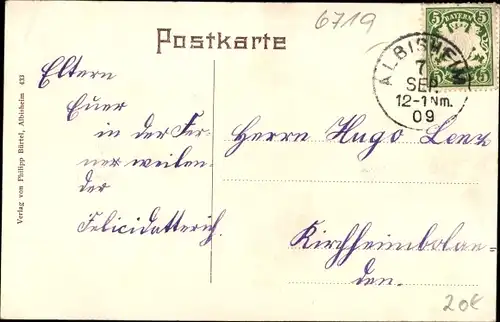 6719
Postkarte
5 BAYERN 5
5 5
ALBISHEIM
7
SEP.
12-1 Nm.
09
Eltern
Euer
in der Fer-
ner weilen-
der
Herrn Hugo Lenz
Kirchheimbolan-
den.
20€
Verlag von Philipp Bürtel, Albisheim 433